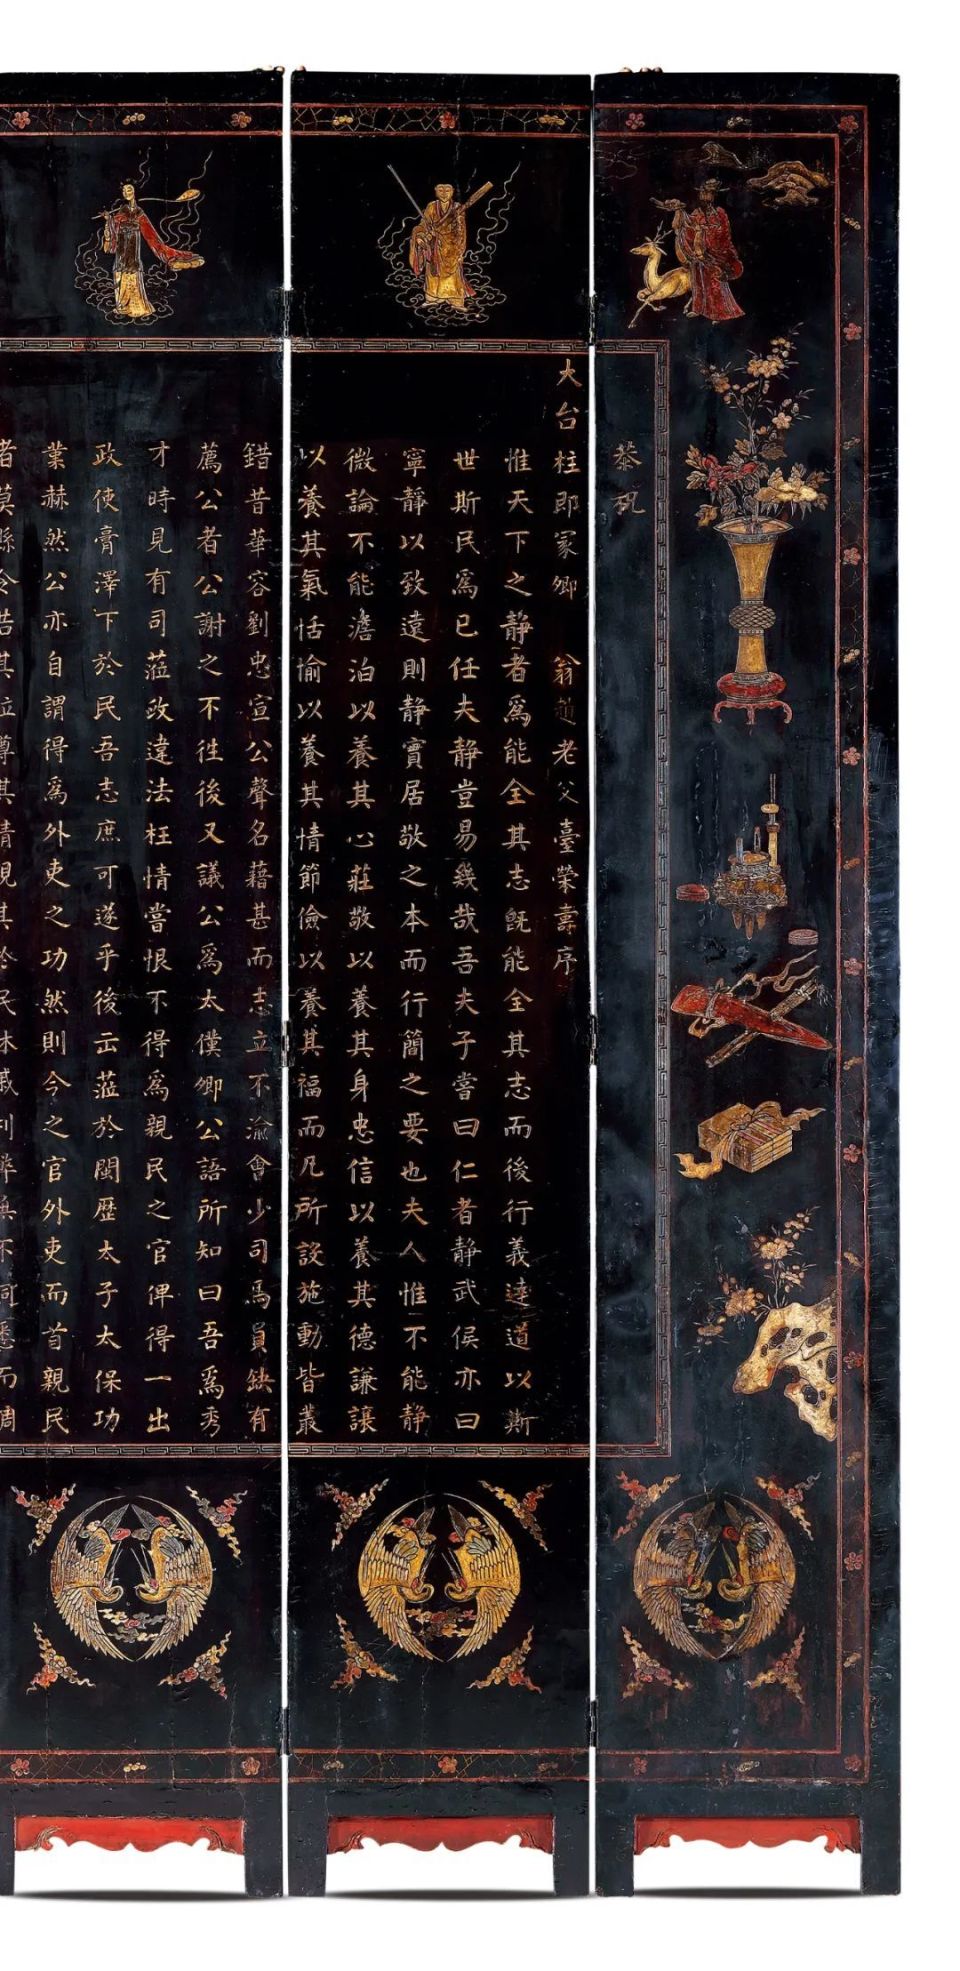 恭祝
大台柱即冢卿 翁趙老父臺榮壽序
惟天下之靜者為能全其志旣能全其志而後行義達道以斯
世斯民爲已任夫静豈易幾哉吾夫子嘗曰仁者静武侯亦曰
寧靜以致遠則静實居敬之本而行簡之要也夫人惟不能静
微論不能澹泊以養其心莊敬以養其身忠信以養其德謙讓
以養其氣恬愉以養其情節儉以養其福而凡所設施動皆叢
錯昔華容劉忠宣公聲名藉甚而志立不渝會少司馬員缺有
薦公者公謝之不徃後又議公爲太僕卿公語所知曰吾爲秀
才時見有司蒞政違法枉情嘗恨不得爲親民之官俾得一出
政使膏澤下於民吾志庶可遂乎後云蒞於閩歷太子太保功
業赫然公亦自謂得爲外吏之功然則今之官外吏而首親民